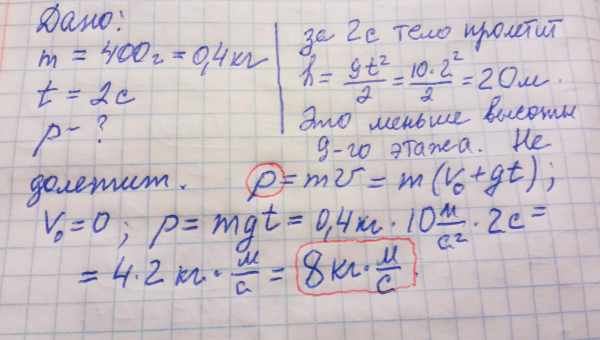 Дано:
m = 400г = 0,4кг
t = 2с
p - ?
за 2с тело пролетит
h = gt²/2 = 10·2²/2 = 20м.
Это меньше высоты
9-го этажа. Не
долетит. p = mv = m(v₀+gt);
V₀=0; p = mgt = 0,4кг·10 м/с²·2с =
= 4·2 кг·м/с = 8кг·м/с.